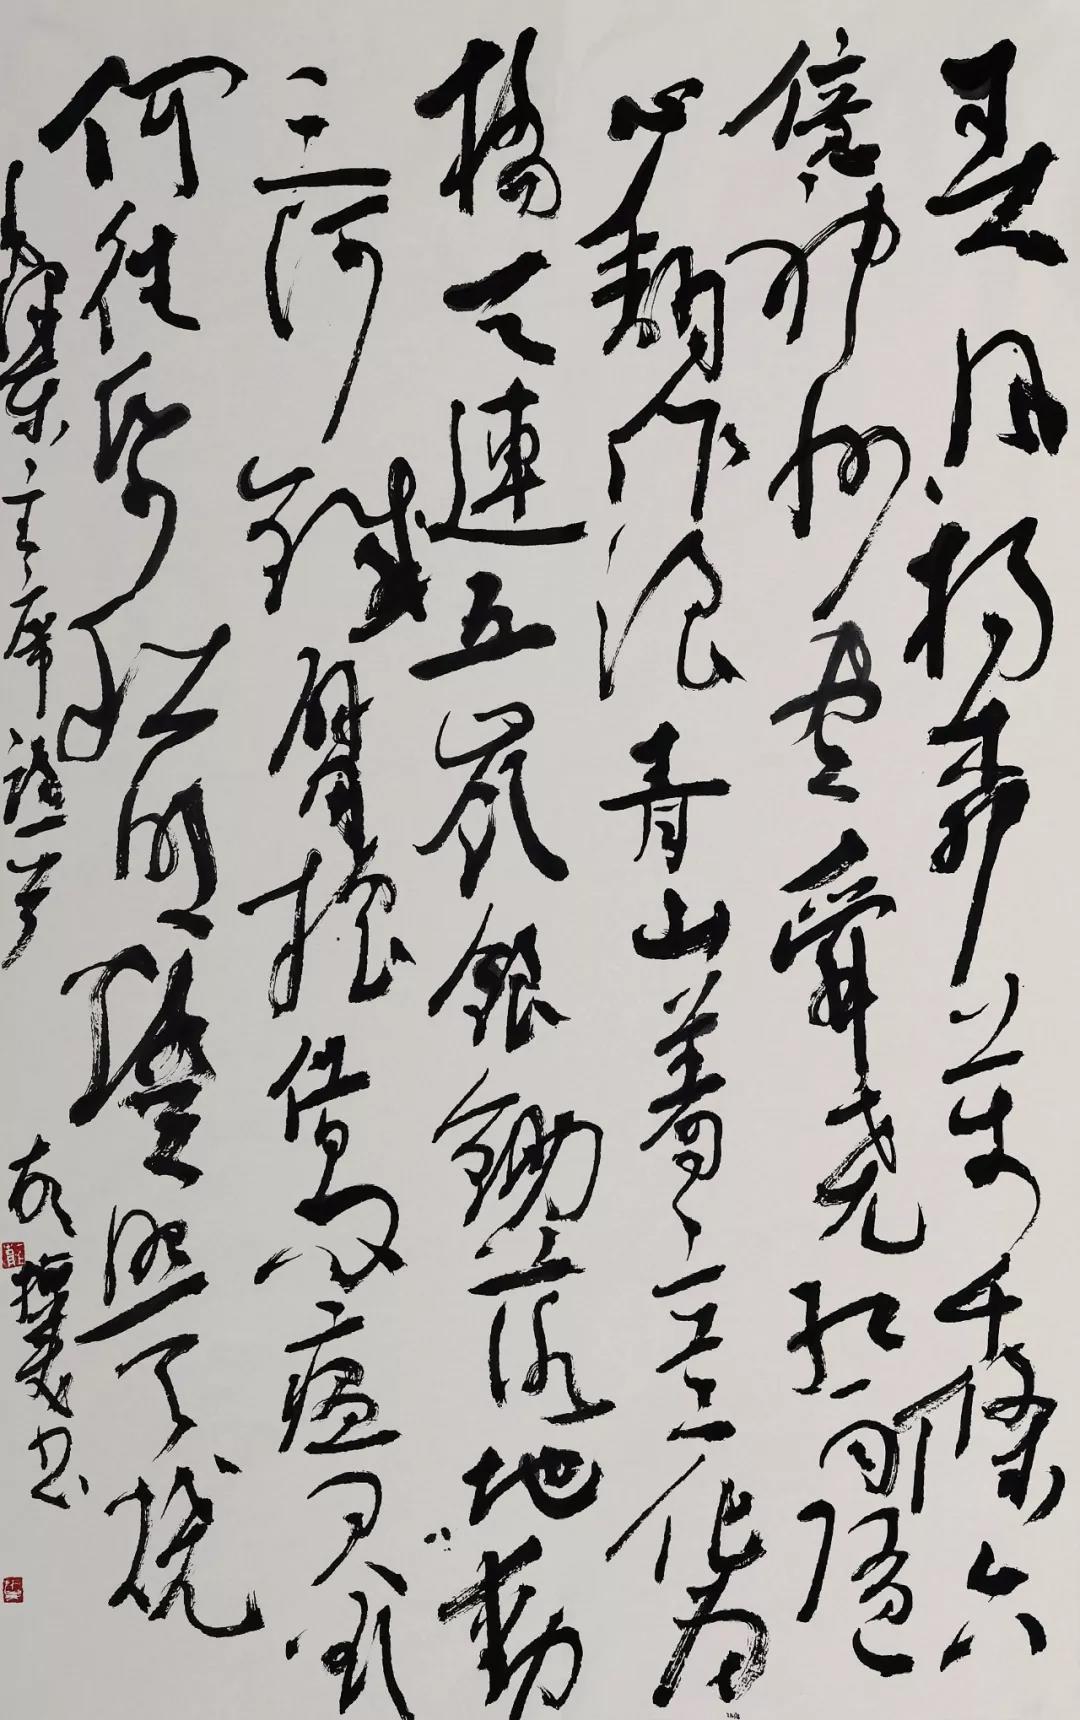 春风杨柳万千條六
億神州盡舜堯红雨隨
心翻作浪青山着意化為
橋天連五嶺銀鋤落地動
三河鐵臂摇借问瘟君欲
何往紙船明燭照天燒
毛澤東主席詩一首
書